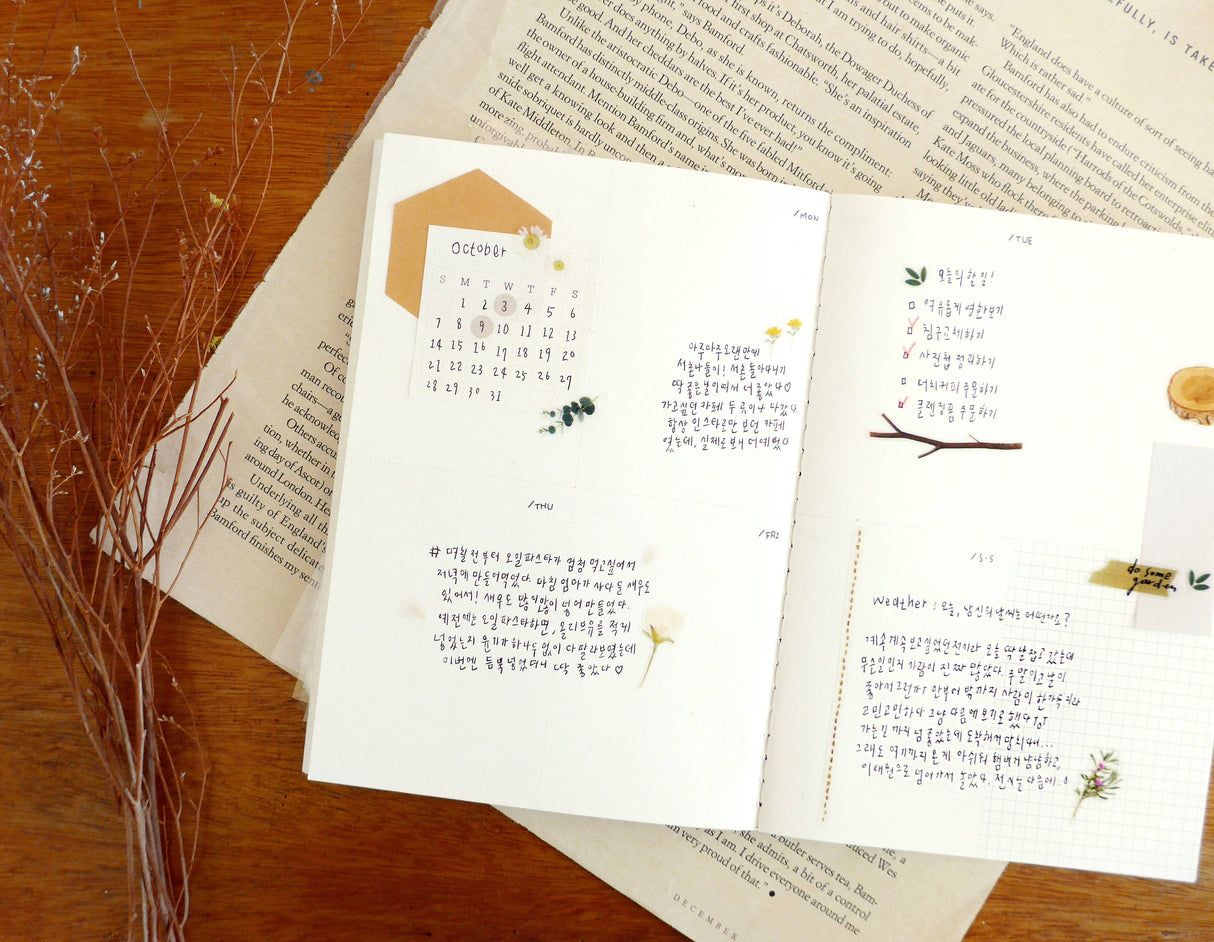 EFULLY, IS TAKE
it puts it.
seems to be mak-
out to make organic
ns and hair shirts—a bit
t I am trying to do, hopefully,
ps it's Deborah, the Dowager Duchess of
first shop at Chatsworth, her palatial estate,
food and crafts fashionable. "She's an inspiration
," says Bamford.
by phone, Debo, as she is known, returns the compliment:
er does anything by halves. If it's her product, you know it's going
e good. And her cheddars are the best I've ever had!"
Unlike the aristocratic Debo—one of the five fabled Mitford
Bamford has distinctly middle-class origins. She was born in
the owner of a house-building firm and, what's more
flight attendant. Mention Bamford's name
well get a knowing look and then a
snide sobriquet is hardly uncom
of Kate Middleton. In
more zing, probab
unforgivab
"England does have a culture of sort of seeing
Which is rather sad."
Bamford has also had to endure criticism from the
Gloucestershire residents have called her enterprise elit
ate for the countryside ("Harrods of the Cotswolds,"
pressured the local planning board to retroacti
expand the business, where the parking
and Jaguars, many belonging to
Kate Moss who flock there
looking little old lad
saying they're
October
S M T W T F S
1 2 3 4 5 6
7 8 9 10 11 12 13
14 15 16 17 18 19 20
21 22 23 24 25 26 27
28 29 30 31
/MON
아주아주 오랜만에
서촌나들이! 서촌 돌아다니기
딱 좋은 날이여서 더 좋았다♡
가고싶던 카페 두 곳이나 다갔다
항상 인스타로만 보던 카페
였는데, 실제로 보니 더예뻤다
/TUE
오늘의 할일!
여유롭게 영화보기
침구교체하기
사진첩 정리하기
더치커피 주문하기
클렌징폼 주문하기
/THU
# 며칠전부터 오일파스타가 엄청 먹고싶어서
저녁에 만들어먹었다. 마침 엄마가 사다둔 새우도
있어서! 새우도 많이많이 넣어 만들었다.
예전에는 오일파스타하면, 올리브유를 적게
넣었는지 윤기가 하나두 없이 다 말라보였는데
이번엔 듬뿍 넣었더니 딱 좋았다♡
/FRI
/S·S
weather : 오늘, 당신의 날씨는 어떤가요?
계속계속 보고싶었던 전시라 오늘 딱 날잡고 갔는데
무슨일인지 사람이 진짜 많았다. 주말이고 날이
좋아서 그런지 안부터 밖까지 사람이 한가득이라
고민고민하다 그냥 다음에 보기로 했다 ToT
가는길까지 넘 좋았는데 도착해서 망치다니...
그래도 여기까지 온게 아쉬워 햄버거 냠냠하고,
이태원으로 넘어가서 놀았다. 전시는 다음에..!
do some
garden
perfec
man recou
chairs—ag
he acknowled
Others accu
tion, whether in t
ing day of Ascot) or
around London. He
Underlying all th
is guilty of England's
up the subject delicate
Bamford finishes my sent
a butler serves tea, Bam-
she admits, a bit of a control
as I am. I drive everyone around me
very proud of that." •
DECEMBER